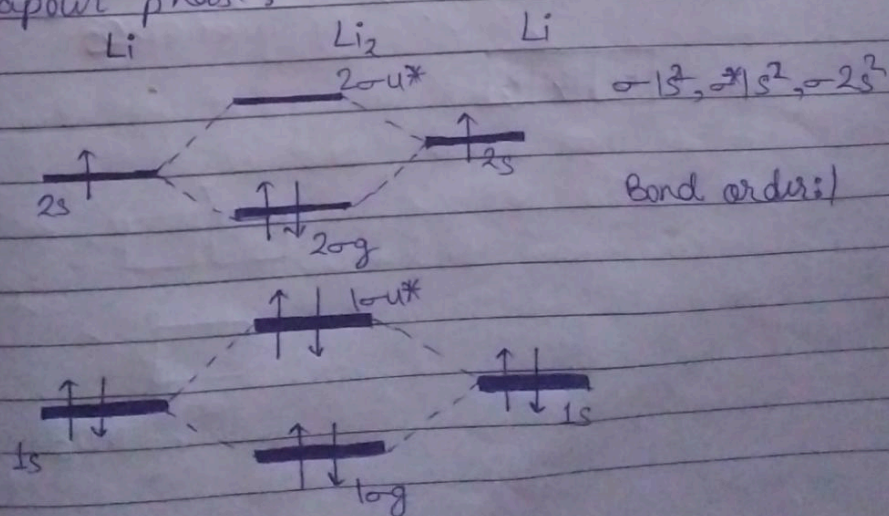 apour phas
Li Li₂ Li
2σu*
σ1s², σ*1s², σ2s²
2s
2s
Bond order:1
2σg
1σu*
1s
1s
1σg